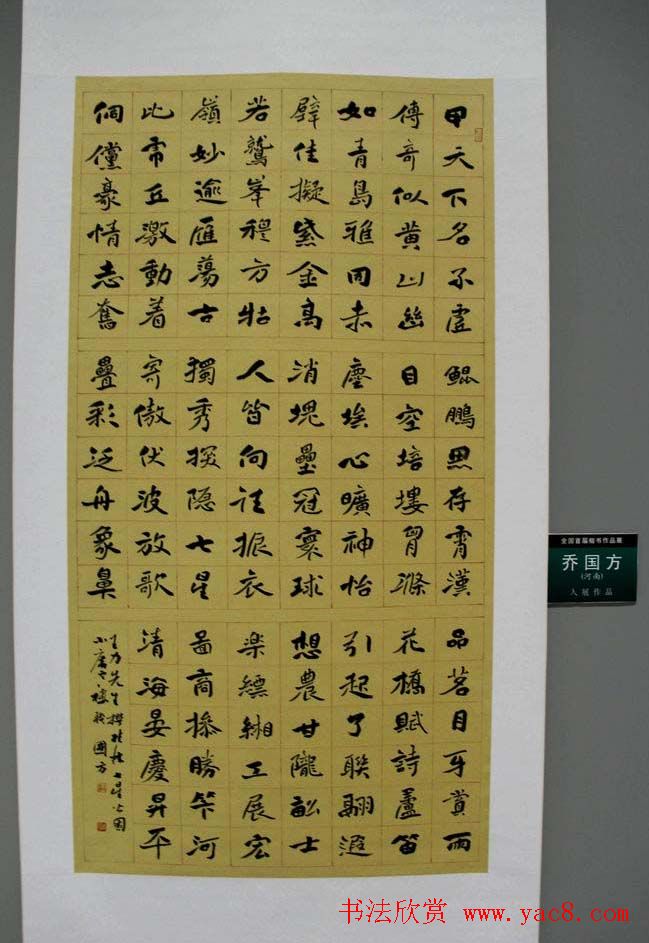 甲天下名不虛
傳奇似黄山幽
如青島雅同赤
壁佳擬紫金高
若鷲峯穆方牯
嶺妙逾雁蕩古
比虎丘激動着
倜儻豪情志奮
鯤鵬思存霄漢
目空培塿胷滌
塵埃心曠神怡
消塊壘冠寰球
人皆向往振衣
獨秀探隐七星
寄傲伏波放歌
疊彩泛舟象鼻
品茗月牙賞雨
花橋賦詩蘆笛
引起了聯翩遐
想農甘隴畝士
樂縹緗工展宏
圖商操勝筭河
清海晏慶昇平
王力先生撰桂林七星公園
小廣寒樓聯 國方
全国首届楷书作品展
乔国方
(河南)
入展作品
书法欣赏 www.yac8.com